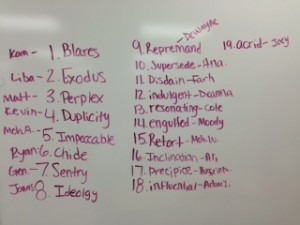 Kom- 1. Blares
Liba- 2. Exodus
Matt- 3. Perplex
Kevin- 4. Duplicity
Meh.A- 5. Impeccable
Ryan- 6. Chide
Gen- 7. Sentry
8. Ideology
9. Repremand - Dewayne
10. Supersede - Ana.
11. Disdain - Farh
12. indulgent - Deanna
13. resonating - Cole
14. engulfed - Moody
15. Retort - Meh.W.
16. Inclination - Ari
17. Precipice -
18. influential -
19. acrid - Joey